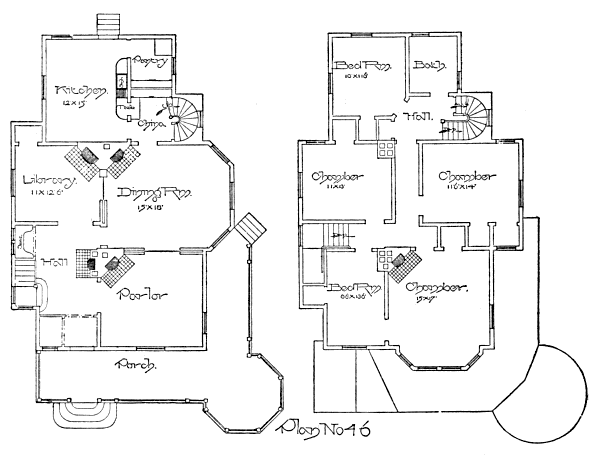 Pantry
Kitchen
12x15'
China
Library
11x12'6"
Dining Rm.
15'x18'
Hall
Parlor
Porch.
Bed Rm.
Bath.
Hall.
Chamber
Chamber
11'6"x14'
Bed Rm
Chamber.
Plan No 46